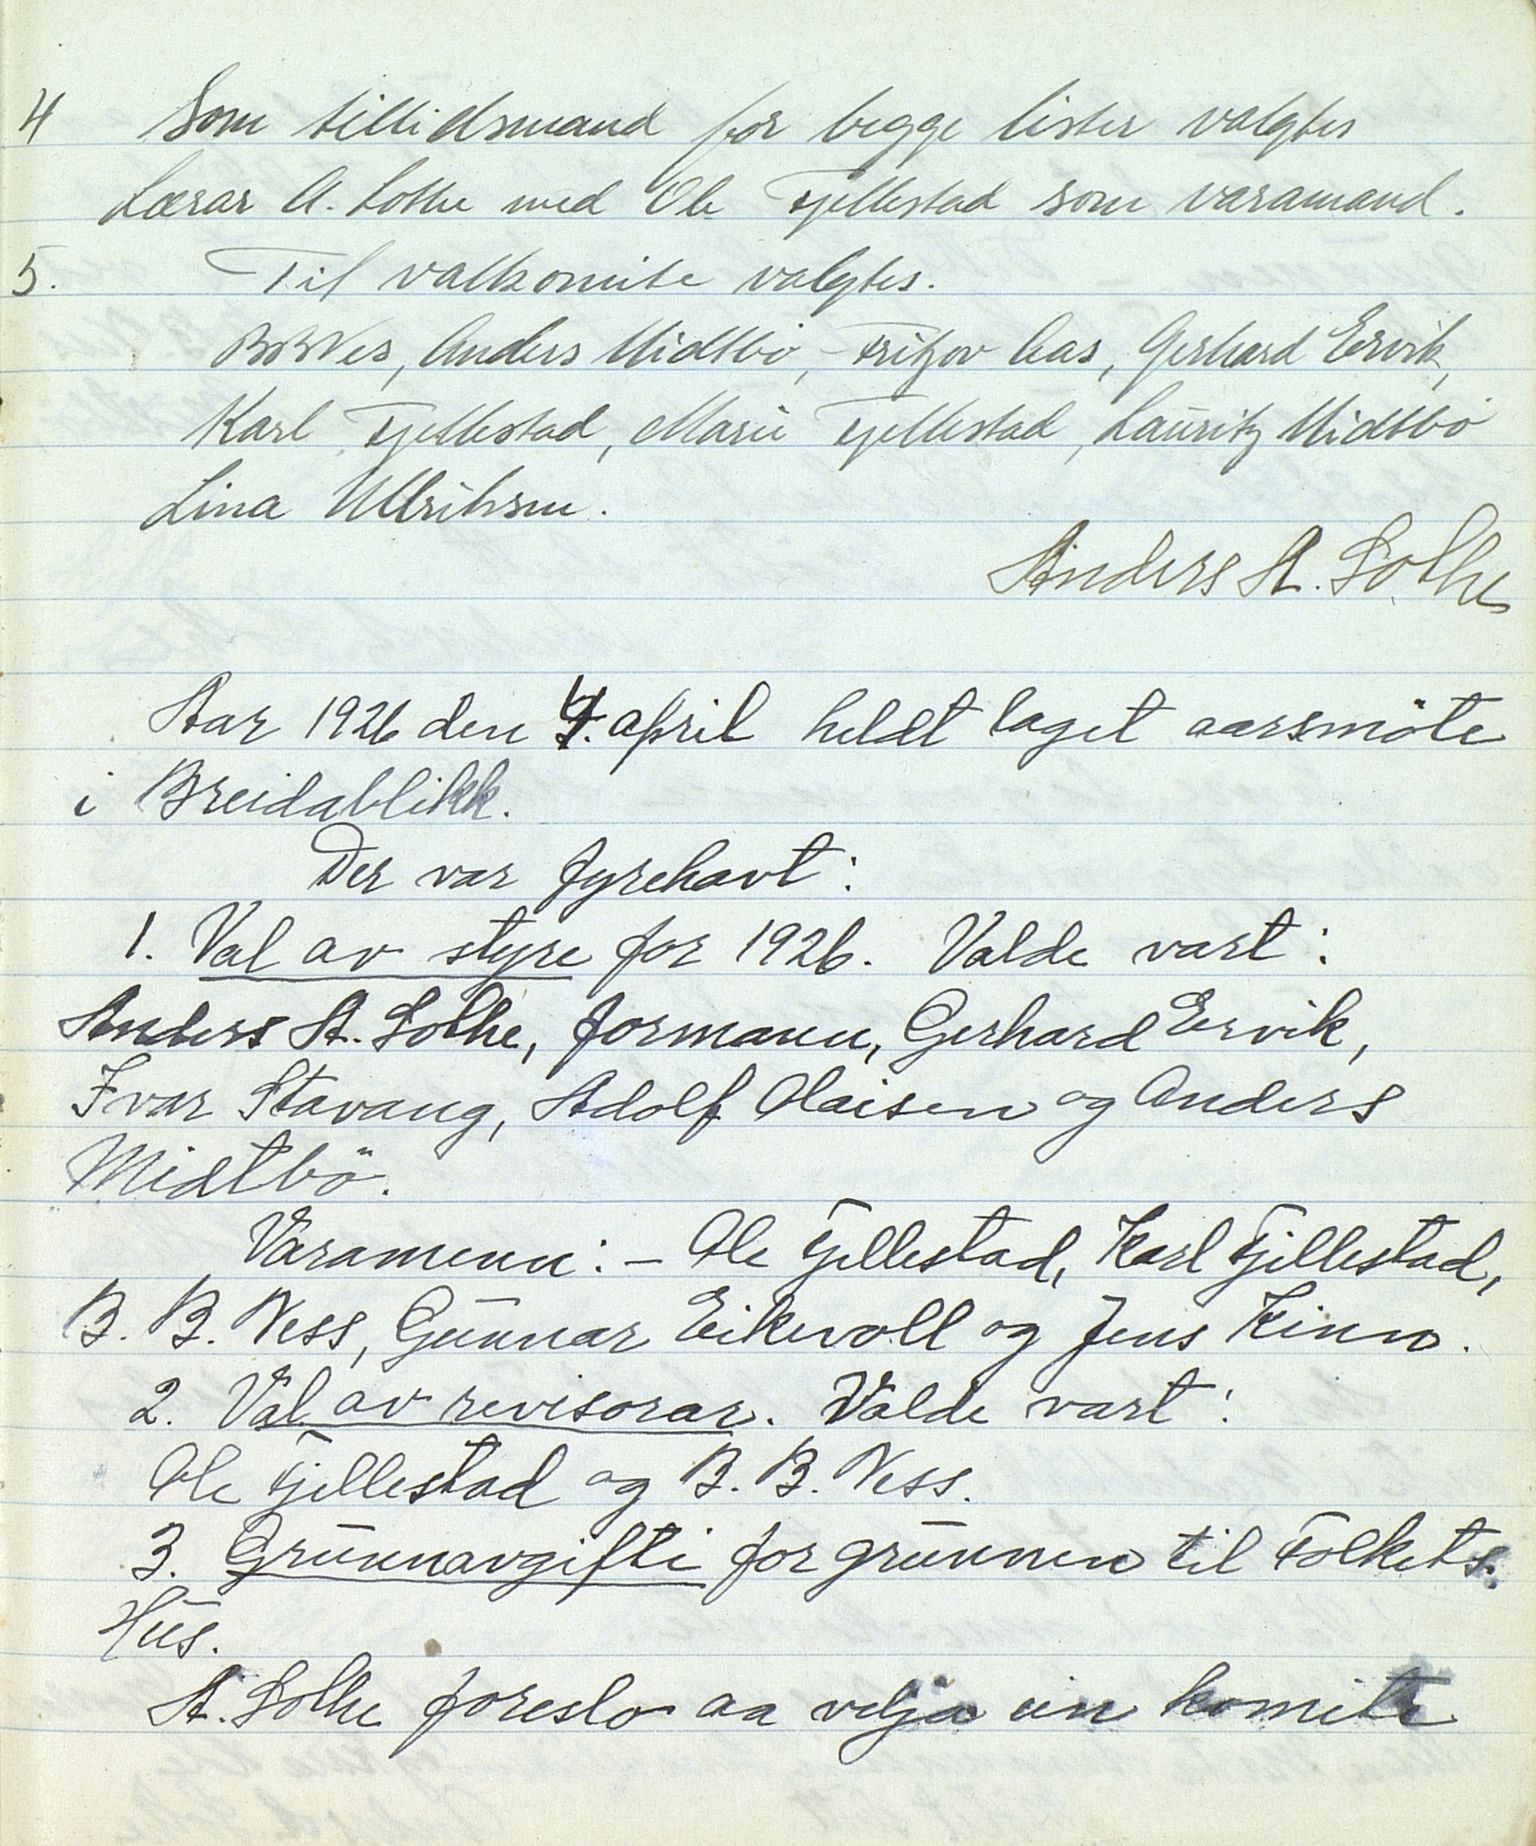 4 Som tillidsmand for begge lister valgtes
Lærar A. Solhe med Ole Fjellestad som varamand.
5. Til valkomite valgtes.
B. B. Nes, Anders Midtbö, Fritjov Aas, Gerhard Ervik,
Karl Fjellestad, Marie Fjellestad, Lauritz Midtbö
Lina Ullriksen.
Anders A. Solhe
Aar 1926 den april heldt laget aarsmöte
i Breidablikk.
Der var fyrehavt:
1. Val av styre for 1926. Valde vart:
Anders A. Solhe, formann, Gerhard Ervik,
Ivar Stavang, Adolf Olaisen og Anders
Midtbö.
Varamenn: – Ole Fjellestad, Karl Fjellestad,
B. B. Ness, Gunnar Eikevoll og Jens Kinn.
2. Val av revisorar. Valde vart:
Ole Fjellestad og B. B. Ness.
3. Grunnavgifti for grunnen til Folkets
Hus.
A. Solhe foreslo aa velja ein komite